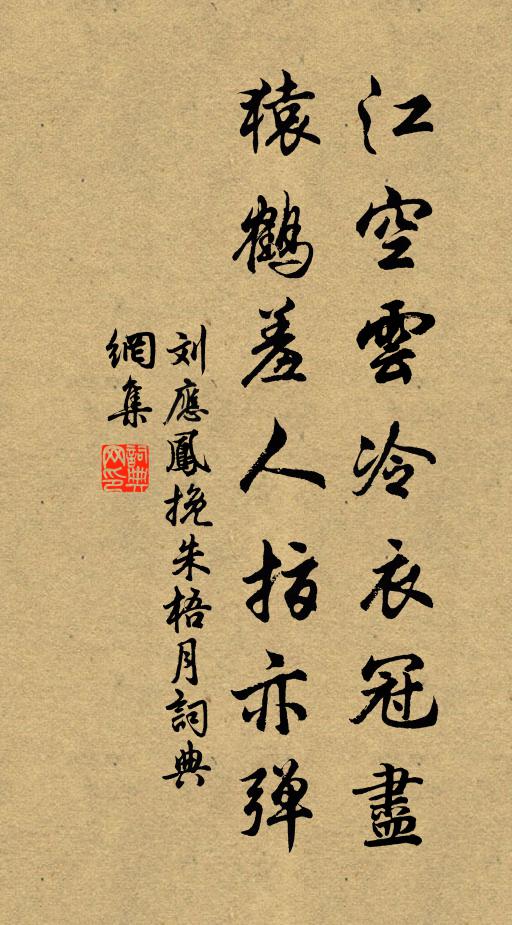 江空雲冷衣冠盡
猿鶴羞人指亦弹
刘應鳳挽朱梧月詞典
網集
詞典
网印